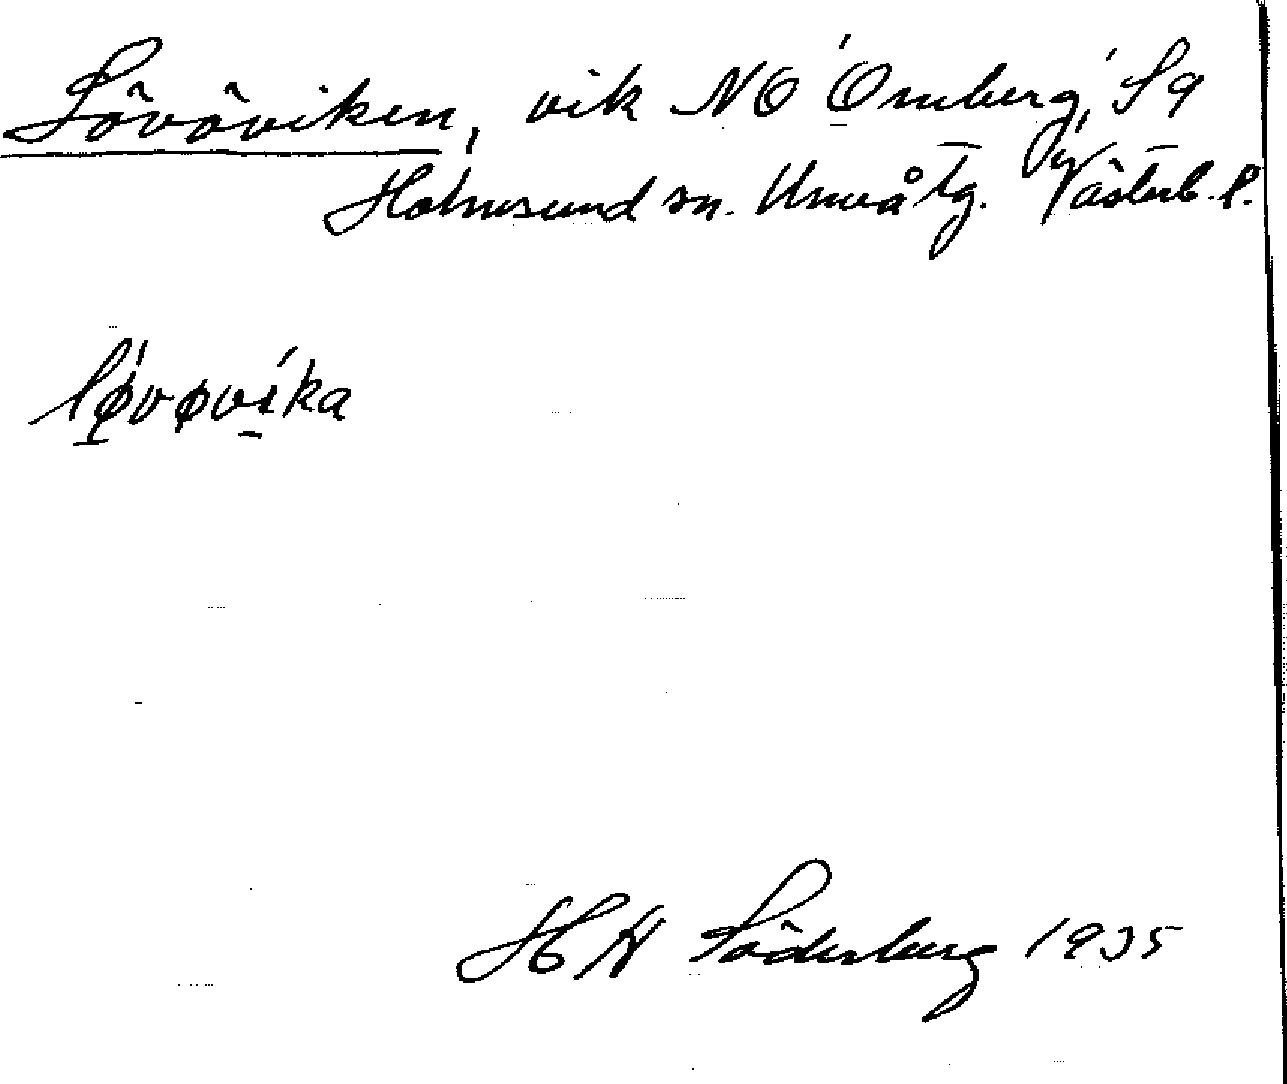 Lövöviken, vik NO Ornberg, S9
Holmsund sn. Umeå tg. Västerb. l.
løvøvika
H A Söderberg 1935